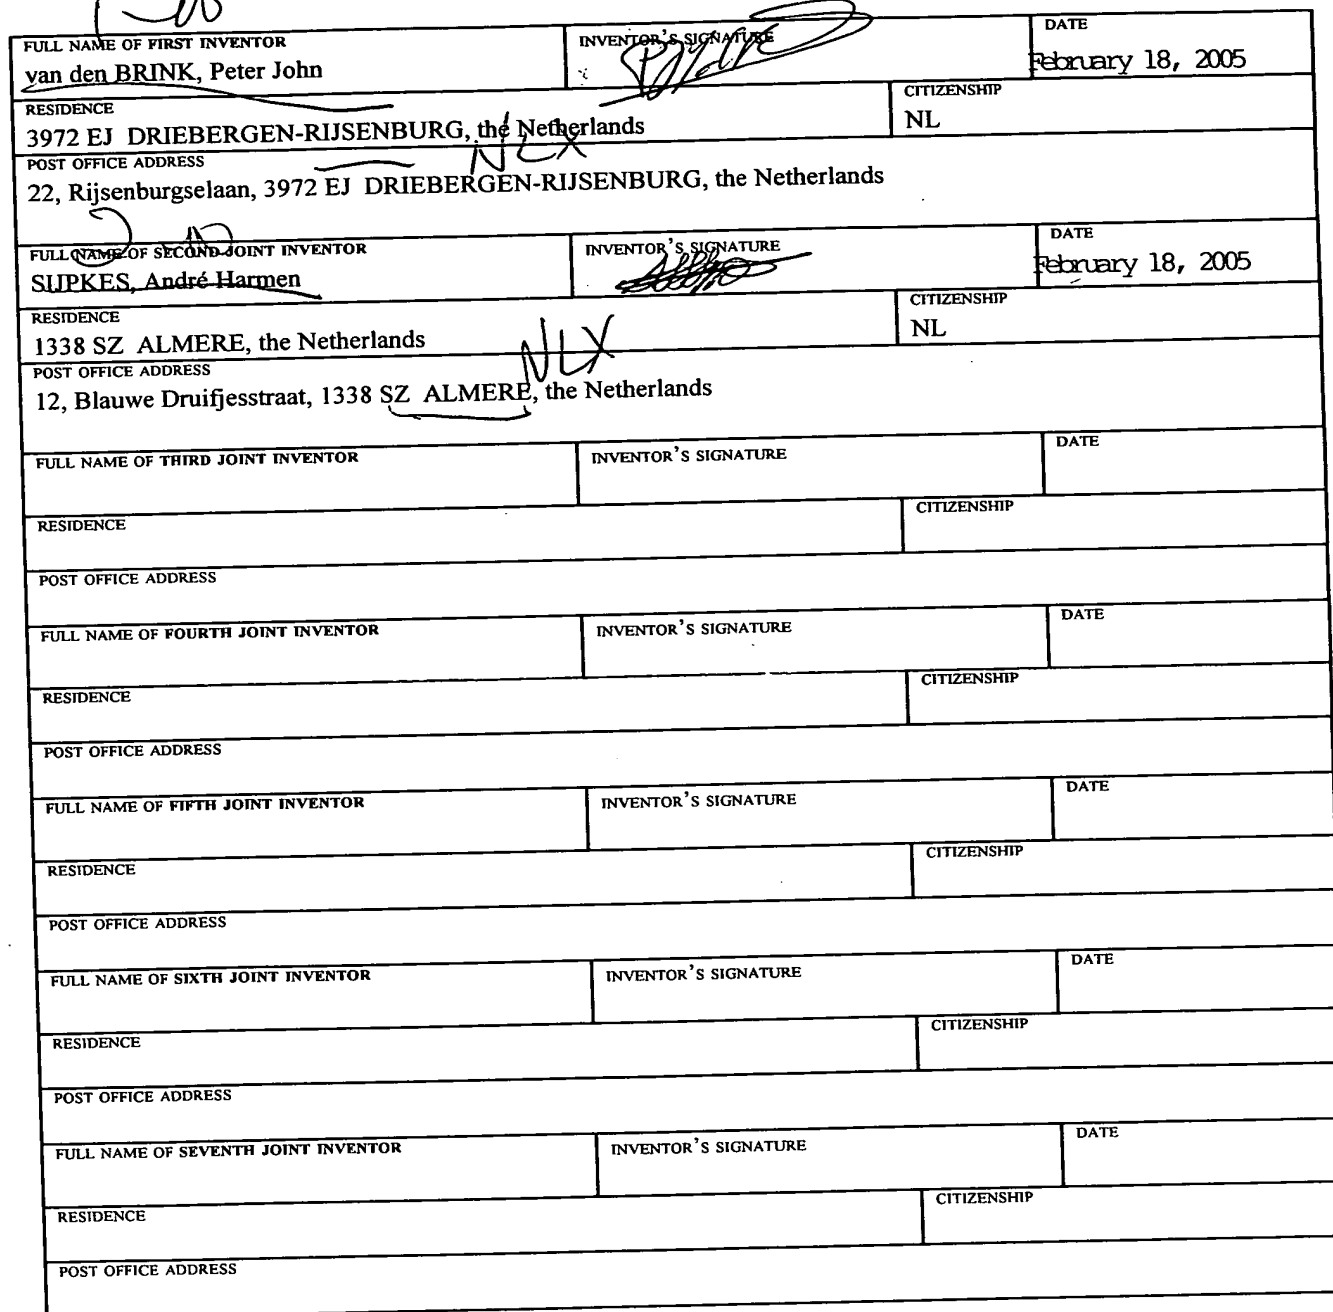 FULL NAME OF FIRST INVENTOR INVENTOR'S SIGNATURE DATE
van den BRINK, Peter John February 18, 2005
RESIDENCE CITIZENSHIP
3972 EJ DRIEBERGEN-RIJSENBURG, the Netherlands NL
NLX
POST OFFICE ADDRESS
22, Rijsenburgselaan, 3972 EJ DRIEBERGEN-RIJSENBURG, the Netherlands
FULL NAME OF SECOND JOINT INVENTOR INVENTOR'S SIGNATURE DATE
SIJPKES, André Harmen February 18, 2005
RESIDENCE CITIZENSHIP
1338 SZ ALMERE, the Netherlands NL
NLX
POST OFFICE ADDRESS
12, Blauwe Druifjesstraat, 1338 SZ ALMERE, the Netherlands
FULL NAME OF THIRD JOINT INVENTOR INVENTOR'S SIGNATURE DATE
RESIDENCE CITIZENSHIP
POST OFFICE ADDRESS
FULL NAME OF FOURTH JOINT INVENTOR INVENTOR'S SIGNATURE DATE
RESIDENCE CITIZENSHIP
POST OFFICE ADDRESS
FULL NAME OF FIFTH JOINT INVENTOR INVENTOR'S SIGNATURE DATE
RESIDENCE CITIZENSHIP
POST OFFICE ADDRESS
FULL NAME OF SIXTH JOINT INVENTOR INVENTOR'S SIGNATURE DATE
RESIDENCE CITIZENSHIP
POST OFFICE ADDRESS
FULL NAME OF SEVENTH JOINT INVENTOR INVENTOR'S SIGNATURE DATE
RESIDENCE CITIZENSHIP
POST OFFICE ADDRESS